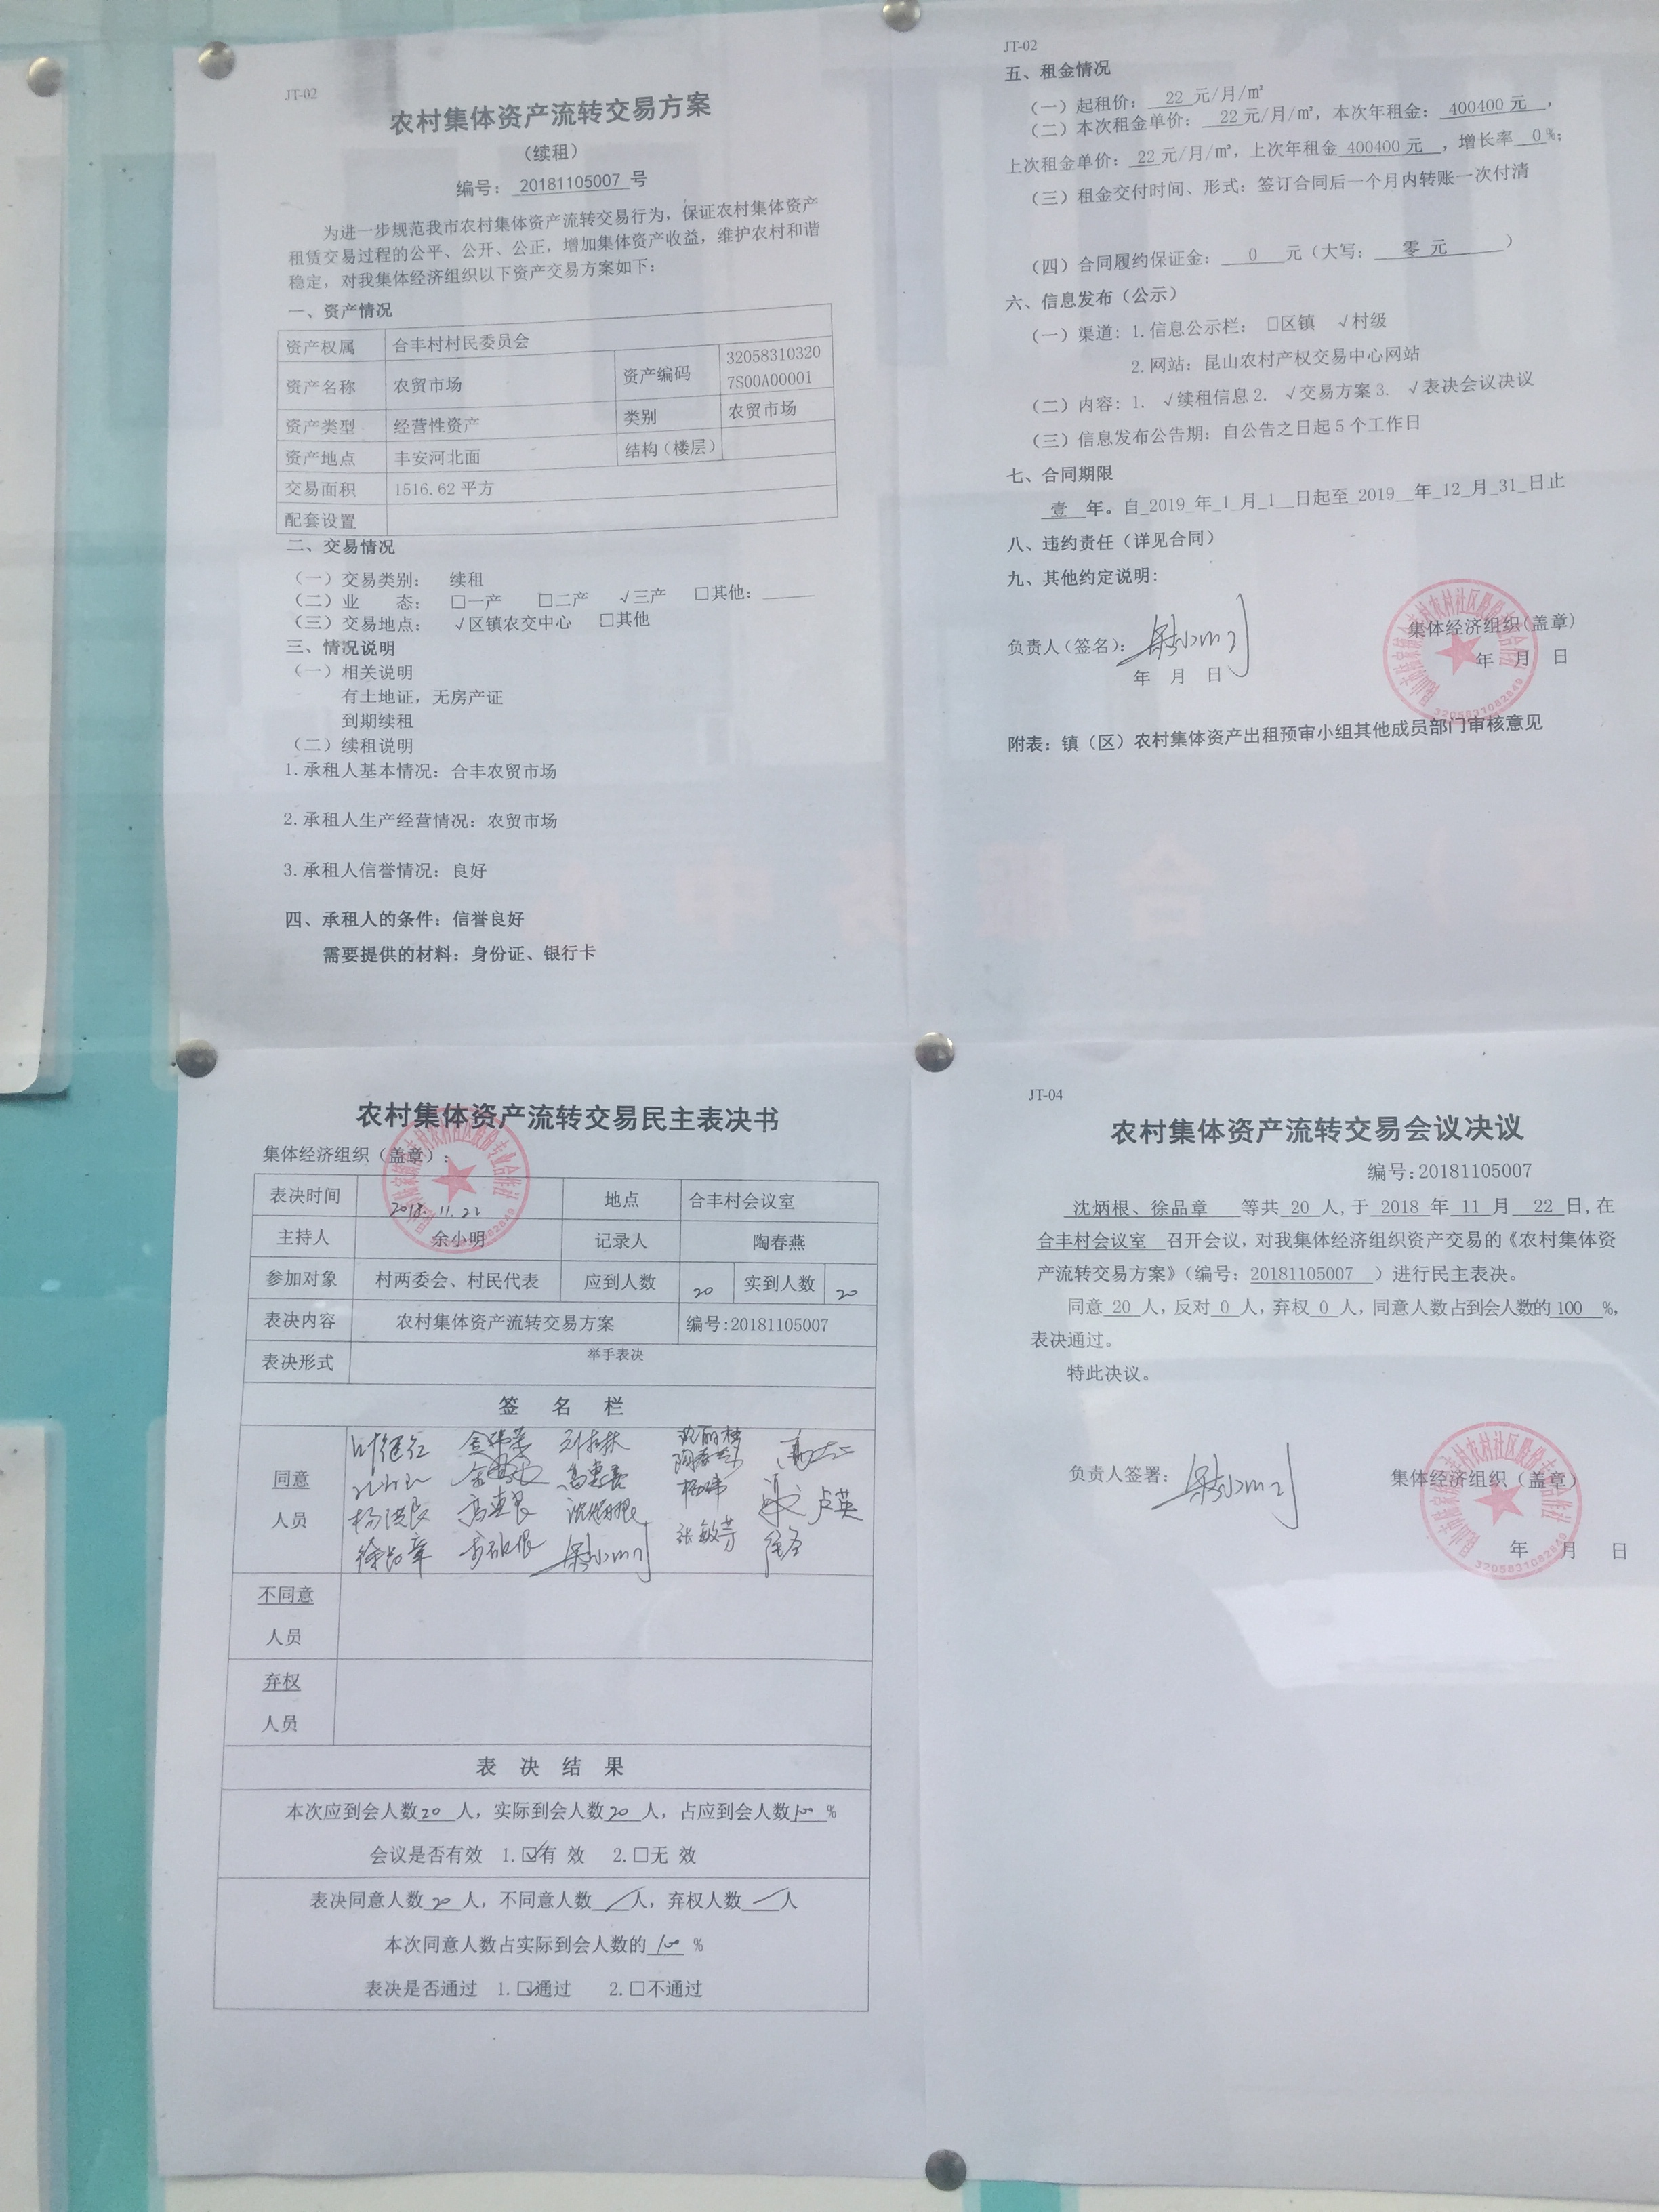 JT-02
农村集体资产流转交易方案
（续租）
编号： 20181105007 号
为进一步规范我市农村集体资产流转交易行为，保证农村集体资产
租赁交易过程的公平、公开、公正，增加集体资产收益，维护农村和谐
稳定，对我集体经济组织以下资产交易方案如下：
一、资产情况
资产权属 合丰村村民委员会
资产名称 农贸市场 资产编码 32058310320
7S00A00001
资产类型 经营性资产 类别 农贸市场
资产地点 丰安河北面 结构（楼层）
交易面积 1516.62 平方
配套设置
二、交易情况
（一）交易类别： 续租
（二）业 态： □一产 □二产 √三产 □其他：
（三）交易地点： √区镇农交中心 □其他
三、情况说明
（一）相关说明
有土地证，无房产证
到期续租
（二）续租说明
1.承租人基本情况：合丰农贸市场
2.承租人生产经营情况：农贸市场
3.承租人信誉情况：良好
四、承租人的条件：信誉良好
需要提供的材料：身份证、银行卡
JT-02
五、租金情况
（一）起租价： 22 元/月/㎡
（二）本次租金单价： 22 元/月/㎡，本次年租金： 400400 元 ，
上次租金单价：22 元/月/㎡，上次年租金 400400 元 ，增长率 0 %；
（三）租金交付时间、形式：签订合同后一个月内转账一次付清
（四）合同履约保证金： 0 元（大写： 零 元 ）
六、信息发布（公示）
（一）渠道：1.信息公示栏： □区镇 √村级
2.网站：昆山农村产权交易中心网站
（二）内容：1. √续租信息 2. √交易方案 3. √表决会议决议
（三）信息发布公告期：自公告之日起 5 个工作日
七、合同期限
壹 年。自 2019 年 1 月 1 日起至 2019 年 12 月 31 日止
八、违约责任（详见合同）
九、其他约定说明：
负责人（签名）： 集体经济组织（盖章）
年 月 日 年 月 日
3205831082849
附表：镇（区）农村集体资产出租预审小组其他成员部门审核意见
农村集体资产流转交易民主表决书
集体经济组织（盖章）：
表决时间 2018.11.22 地点 合丰村会议室
主持人 余小明 记录人 陶春燕
参加对象 村两委会、村民代表 应到人数 20 实到人数 20
表决内容 农村集体资产流转交易方案 编号:20181105007
表决形式 举手表决
签 名 栏
同意
人员
杨洪良
徐品章 张敏芳 卢英
不同意
人员
弃权
人员
表 决 结 果
本次应到会人数 20 人，实际到会人数 20 人，占应到会人数 100 %
会议是否有效 1.☑有 效 2.□无 效
表决同意人数 20 人，不同意人数 / 人，弃权人数 / 人
本次同意人数占实际到会人数的 100 %
表决是否通过 1.☑通过 2.□不通过
JT-04
农村集体资产流转交易会议决议
编号:20181105007
沈炳根、徐品章 等共 20 人,于 2018 年 11 月 22 日,在
合丰村会议室 召开会议,对我集体经济组织资产交易的《农村集体资
产流转交易方案》(编号：20181105007 ）进行民主表决。
同意 20 人，反对 0 人，弃权 0 人，同意人数占到会人数的 100 %，
表决通过。
特此决议。
负责人签署： 集体经济组织（盖章）
年 月 日
3205831082849